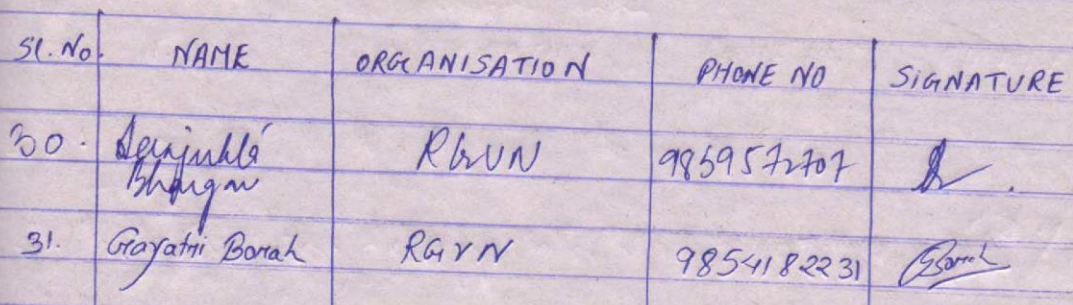 Sl. No. NAME ORGANISATION PHONE NO SIGNATURE
30. RGVN 9859572707
31. Gayatri Borah RGVN 9854182231 GBorah